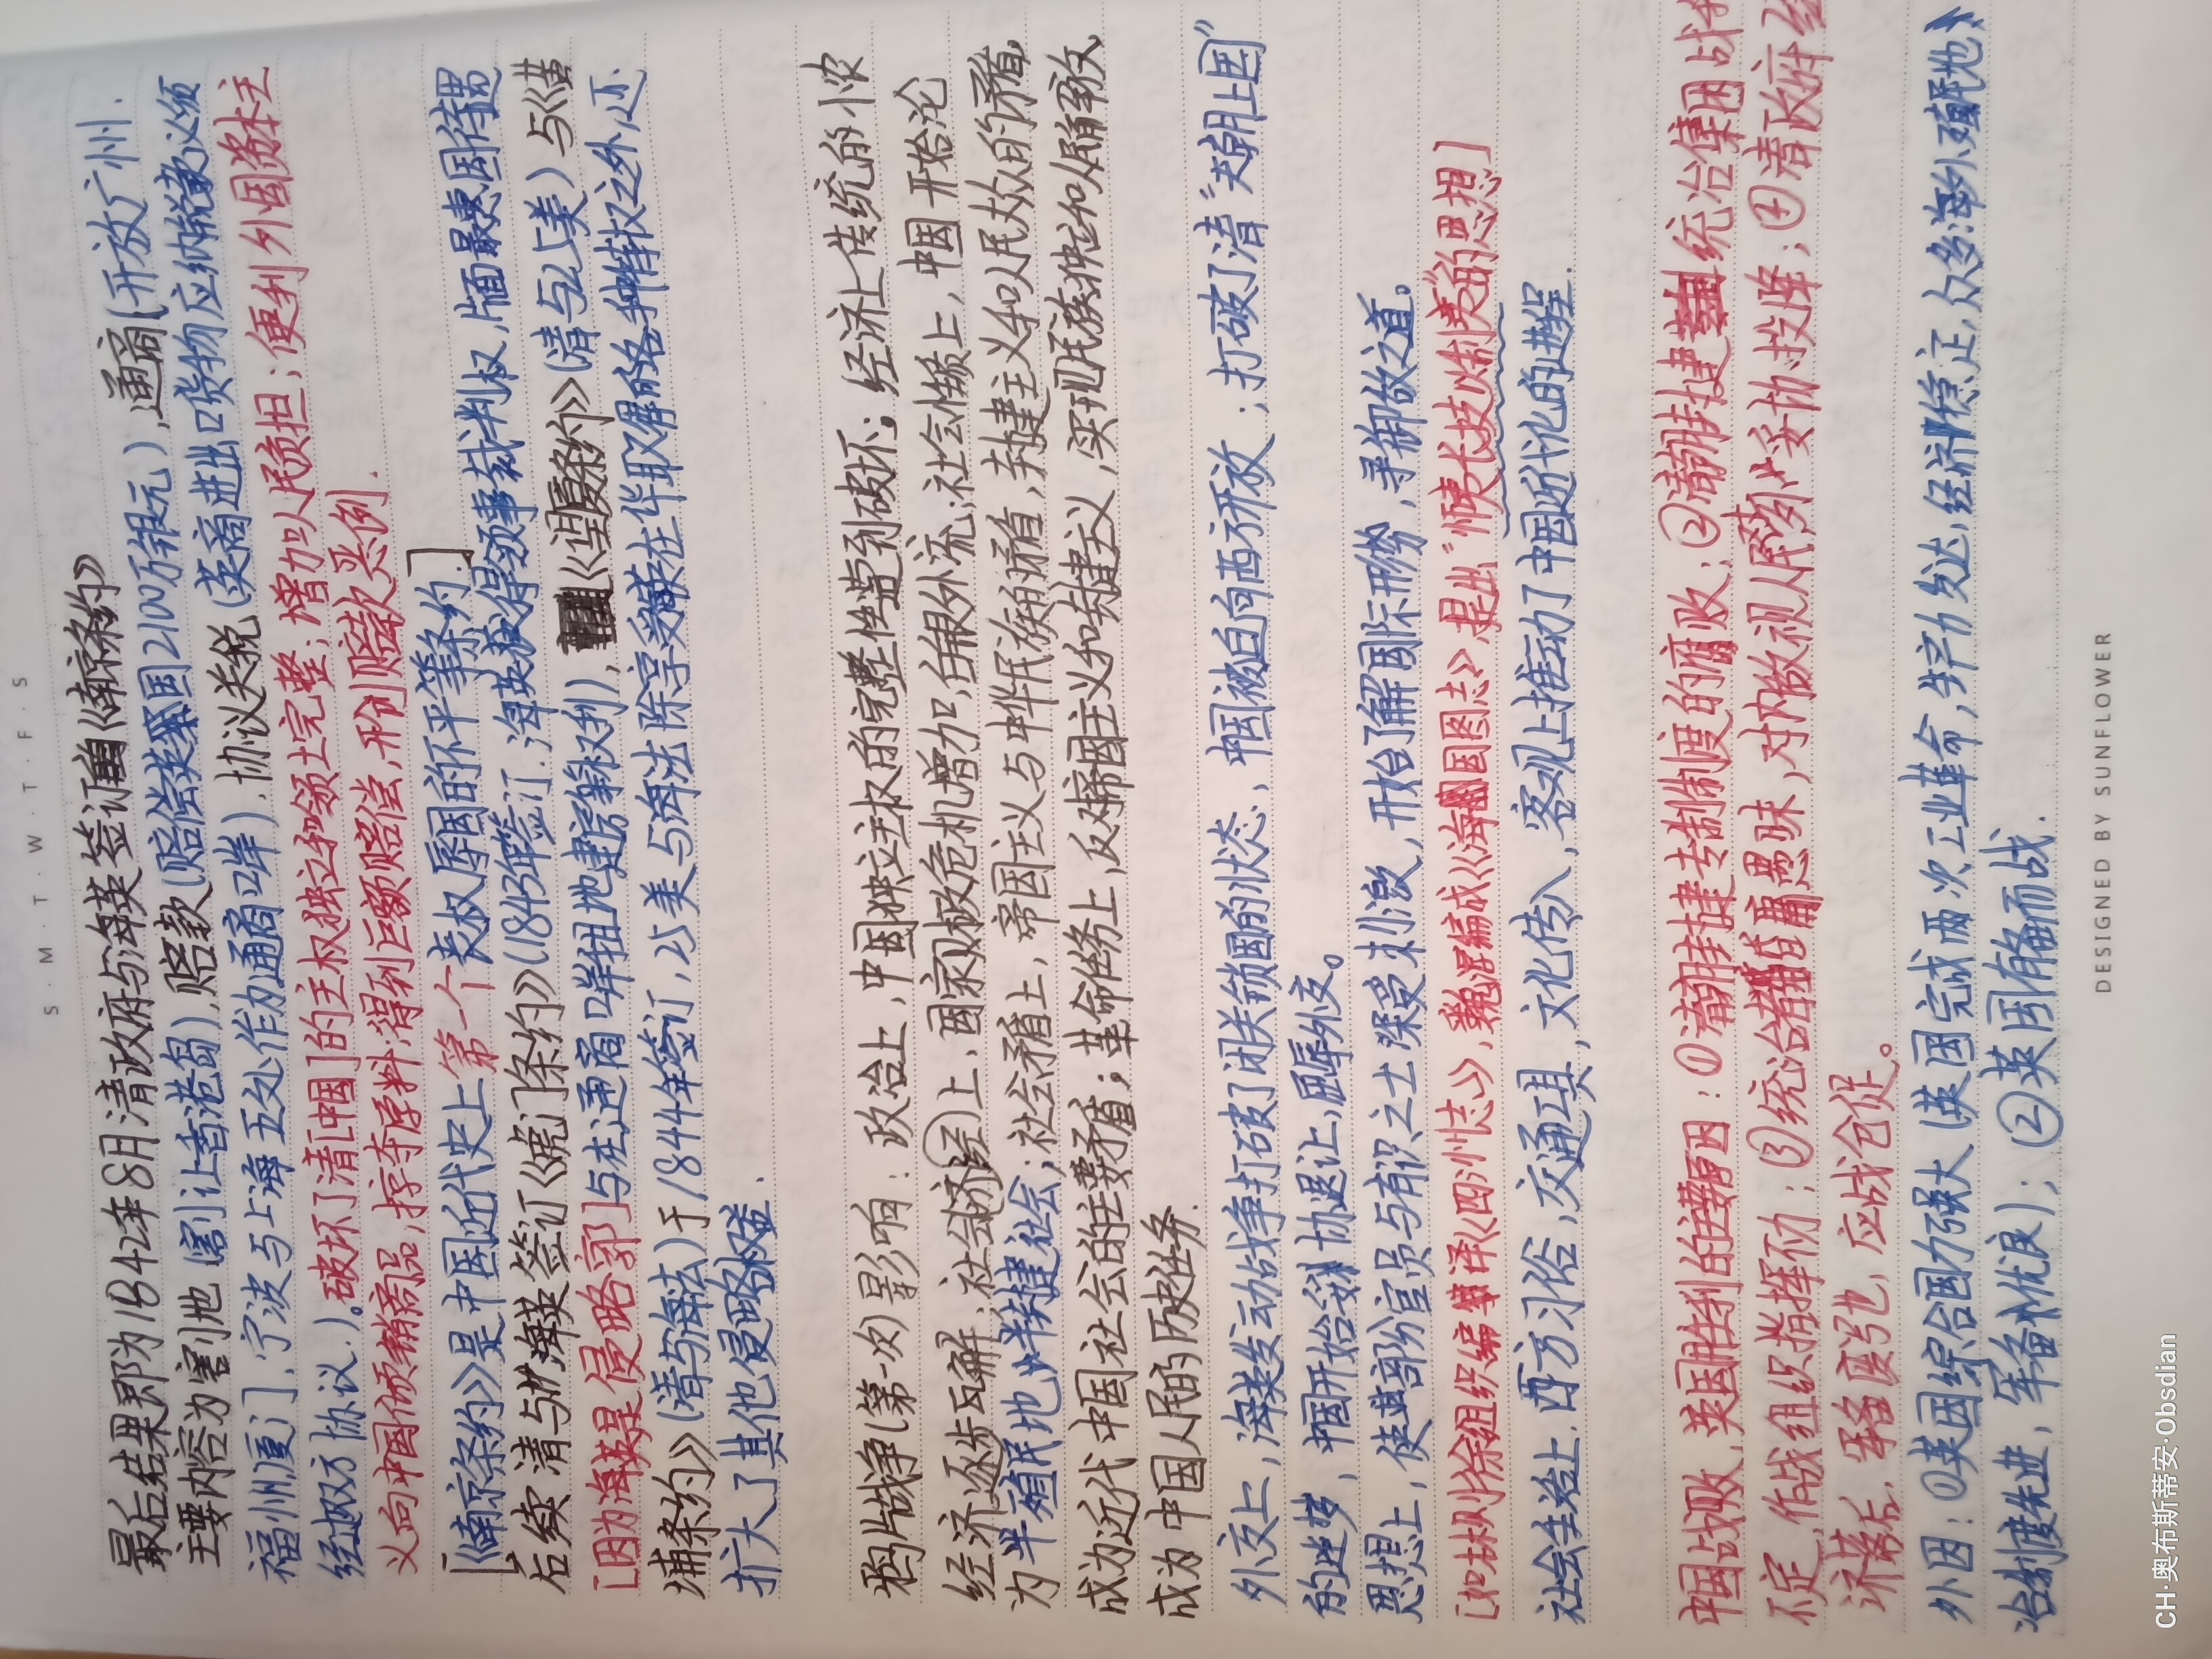 S · M · T · W · T · F · S
最后结果即为1842年8月清政府与海英签订《南京条约》
主要内容为割地(割让香港岛),赔款(赔偿英国2100万银元),通商(开放广州.
福州厦门],宁波与上海五处作为通商口岸),协议关税(英商进出口货物应纳税款必须
经过双方协议.)。破坏了清[中国]的主权独立和领土完整;增加人民负担;便利外国资本主
义向中国倾销商品,掠夺原料;得到巨额赔偿,形创赔款恶例.
[《南京条约》是中国近代史上第一个丧权辱国的不平等条约.]
后续清与海英签订《虎门条约》(1843年签订.海英获得领事裁判权,片面最惠国待遇
[因为海英是侵略郭]与在通商口岸租地建房等权利),《望厦条约》(清与山美)与《黄
埔条约》(清与海法)于1844年签订,山美与海法除享受海英在华取得的各种特权之外,还
扩大了其他侵略权益.
鸦片战争(第一次)影响:政治上,中国独立主权的完整性遭到破坏;经济上传统的小农
经济逐步瓦解;社会经济上,国家财政危机增加,白银外流;社会性质上,中国开始沦
为半殖民地半封建社会;社会矛盾上,帝国主义与中华民族的矛盾,封建主义和人民大众的矛盾,
成为近代中国社会的主要矛盾;革命任务上,反对帝国主义和封建主义,实现民族独立和人民解放,
成为中国人民的历史任务.
外交上,海英发动战争打破了闭关锁国的状态,中国被迫向西方开放;打破了清"天朝上国"
的迷梦,中国开始妥协退让,屈辱外交。
思想上,使其部份官员与有识之士深受刺激,开始了解国际形势,寻御敌之道。
[如林则徐组织编译《四洲志》,魏源编成《海国图志》,提出"师夷长技以制夷"的思想]
社会生活上.西方习俗,交通工具,文化传入,客观上推动了中国近代化的进程.
中国战败,英国胜利的主要原因:①清朝封建专制制度的腐败;②清朝封建统治集团战和
不定,作战组织指挥不力;③统治者昏庸愚昧,对内敌视人民,对外妥协投降;④清政府经
济落后,军备废弛,应战仓促。
外因:①英国综合国力强大(英国完成两次工业革命,生产力发达,经济稳定,众多海外殖民地,政
治制度先进,军备优良);②英国有备而战.
DESIGNED BY SUNFLOWER
CH·奥布斯蒂安·Obsdian